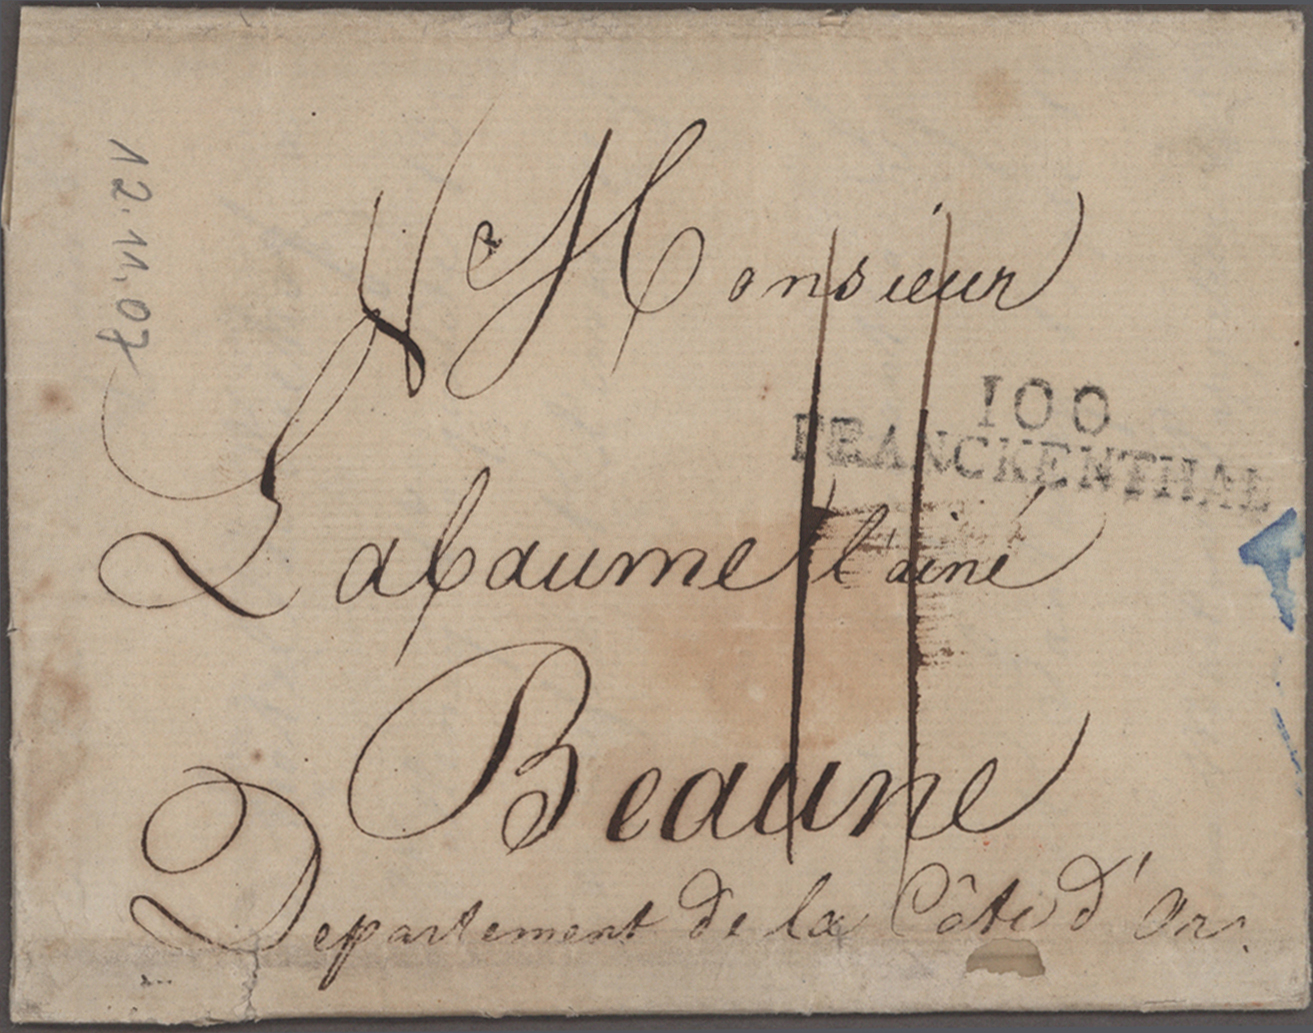 12.11.07
A Monsieur
100
FRANCKENTHAL
Labaume l'ainé
Beaune
Departement de la Côte d'Or.